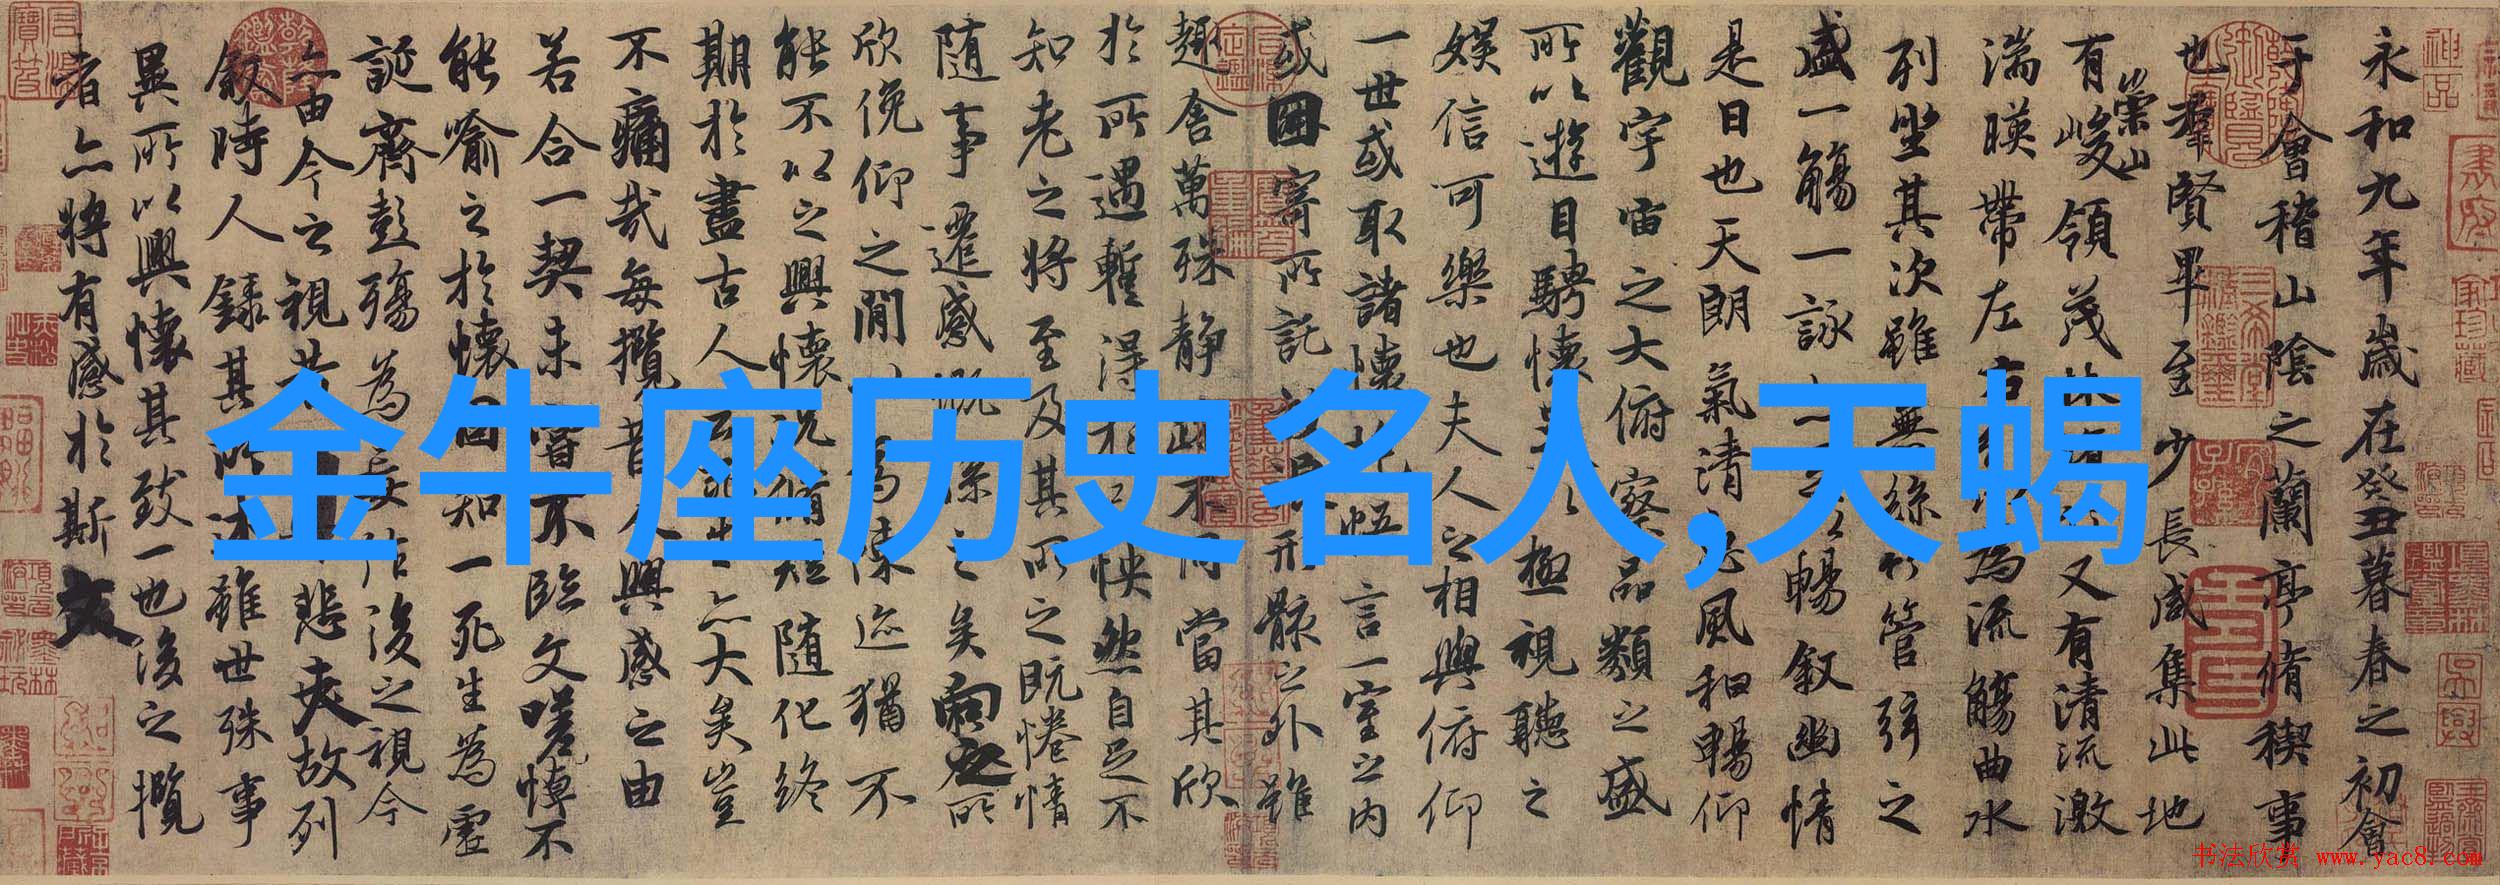 永和九年歲在癸丑暮春之初會
于會稽山陰之蘭亭脩稧事
也群賢畢至少長咸集此地
有崇山峻領茂林又有清流激
湍暎帶左右為流觴曲水
列坐其次雖無絲竹管弦之
盛一觴一詠以暢敘幽情
是日也天朗氣清風和暢仰
觀宇宙之大俯察品類之盛
所以遊目騁懷極視聽之
娛信可樂也夫人之相與俯仰
一世或取諸懷悟言一室之內
或因寄所託形骸之外雖
趣舍萬殊靜不同當其欣
於所遇暫得怏然自足不
知老之將至及其所之既惓情
隨事遷感慨係之矣向之所
欣俛仰之閒為陳迹猶不
能不以之興懷況脩短隨化終
期於盡古人云亦大矣豈
不痛哉每攬昔人興感之由
若合一契未嘗不臨文嗟悼不
能喻之於懷固知一死生為虛
誕齊彭殤為妄作後之視今
亦由今之視昔悲夫故列
敘時人錄其所述雖世殊事
異所以興懷其致一也後之攬
者亦將有感於斯文
金牛座历史名人,天蝎
书法欣赏 www.yac8.com